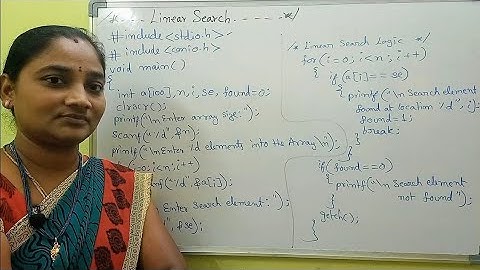 /*--- Linear Search -----*/
#include<stdio.h>
#include<conio.h>
void main()
{
int a[100], n, i, se, found=0;
clrscr();
printf("\n Enter array size:");
scanf("%d", &n);
printf("\n Enter %d elements into the Array\n");
=0; i<n; i++)
"%d", &a[i]);
Enter Search element: ");
", &se);
/* Linear Search Logic */
for(i=0; i<n; i++)
{
if(a[i]==se)
{
printf("\n Search element
found at location %d", i);
found=1;
break;
}
}
if(found==0)
{
printf("\n Search element
not found");
}
getch();
}